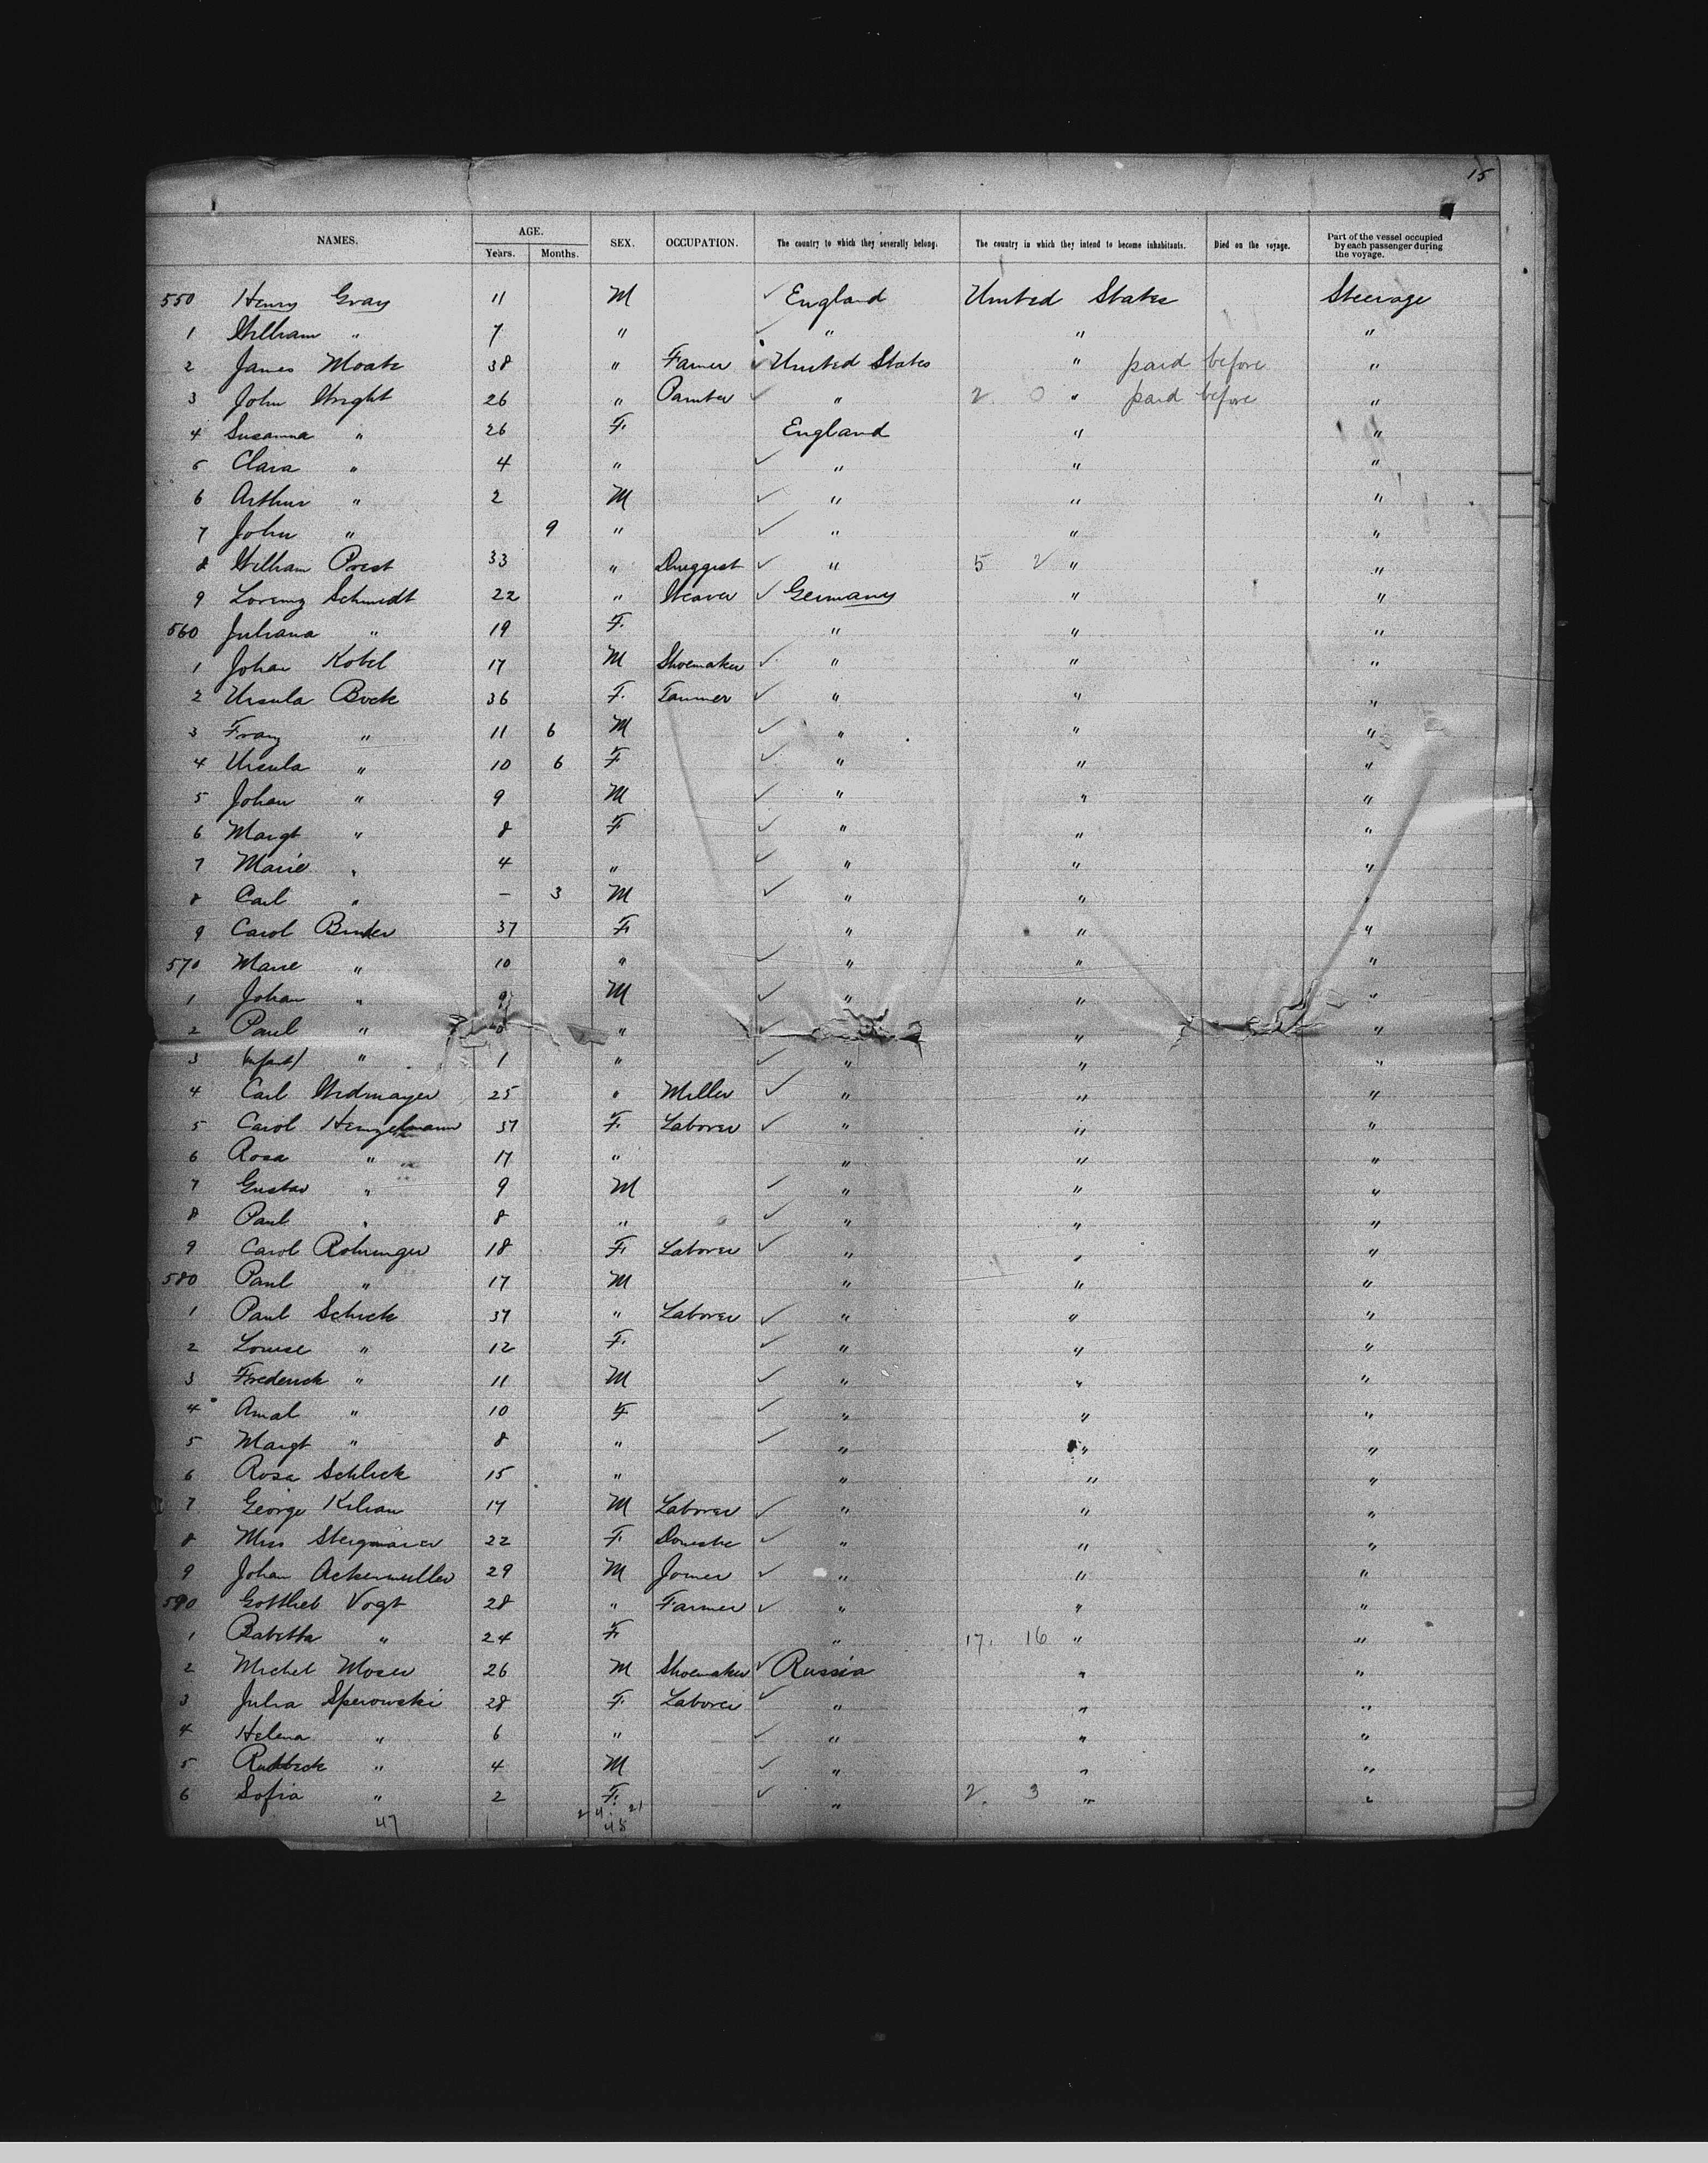 15
NAMES. AGE. Years. Months. SEX. OCCUPATION. The country to which they severally belong. The country in which they intend to become inhabitants. Died on the voyage. Part of the vessel occupied by each passenger during the voyage.
550 Henry Gray 11 M ✓ England United States Steerage
1 William " 7 " ✓ " " "
2 James Moate 38 " Farmer ✓ United States " paid before "
3 John Wright 26 " Painter ✓ " 2 0 " paid before "
4 Susanna " 26 F. England " "
5 Clara " 4 " ✓ " " "
6 Arthur " 2 M ✓ " " "
7 John " 9 " ✓ " " "
8 William Prest 33 " Druggist ✓ " 5 2 " "
9 Lorenz Schmidt 22 " Weaver ✓ Germany " "
560 Juliana " 19 F. " " "
1 Johan Kobel 17 M Shoemaker ✓ " " "
2 Ursula Bock 36 F. Farmer ✓ " " "
3 Franz " 11 6 M ✓ " " "
4 Ursula " 10 6 F ✓ " " "
5 Johan " 9 M ✓ " " "
6 Margt " 8 F ✓ " " "
7 Marie " 4 " ✓ " " "
8 Carl " - 3 M ✓ " " "
9 Carol Binder 37 F. " " "
570 Marie " 10 " ✓ " " "
1 Johan " 9 M ✓ " " "
2 Paul " " ✓ " "
3 (infant) " 1 " ✓ " " "
4 Carl Widmayer 25 " Miller ✓ " " "
5 Carol Henzelmann 37 F. Laborer ✓ " " "
6 Rosa " 17 " " " "
7 Gustav " 9 M ✓ " " "
8 Paul " 8 " ✓ " " "
9 Carol Rohringer 18 F. Laborer ✓ " " "
580 Paul " 17 M " " "
1 Paul Schick 37 " Laborer ✓ " " "
2 Louise " 12 F. ✓ " " "
3 Frederick " 11 M ✓ " " "
4 Amal " 10 F ✓ " " "
5 Margt " 8 " ✓ " " "
6 Rosa Schlick 15 " " " "
7 George Kilian 17 M Laborer ✓ " " "
8 Miss 22 F. Domestic ✓ " " "
9 Johan Ackermuller 29 M Joiner ✓ " " "
590 Gottlieb Vogt 28 " Farmer ✓ " " "
1 Babetta " 24 F. " 17. 16 " "
2 Michel Moser 26 M Shoemaker ✓ Russia " "
3 Julia Sperowski 28 F. Laborer ✓ " " "
4 Helena " 6 " ✓ " " "
5 " 4 M ✓ " " "
6 Sofia " 2 F. ✓ " 2. 3 " "
47 1 24 21
45